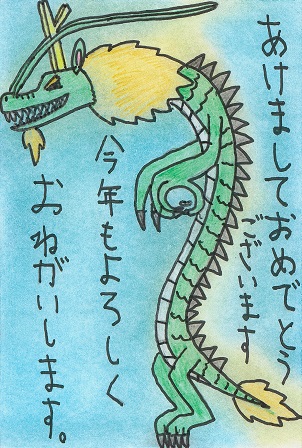 あけましておめでとう
ございます
今年もよろしく
おねがいします。